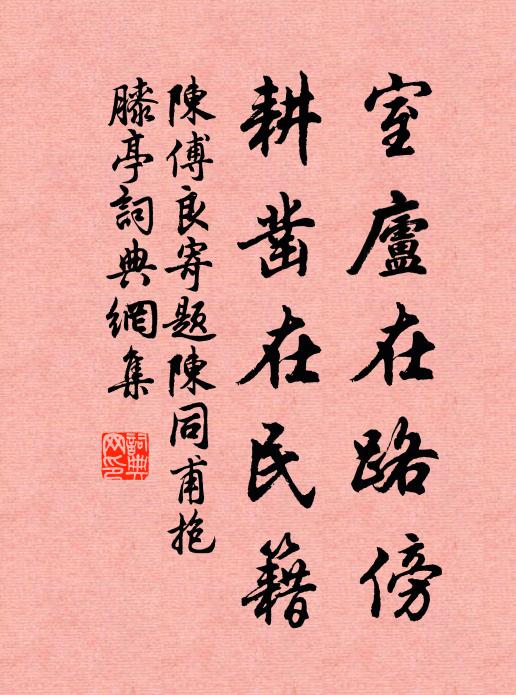 室廬在路傍
耕凿在民籍
陳傅良寄題陳同甫抱
膝亭詞典網集
詞典
网印